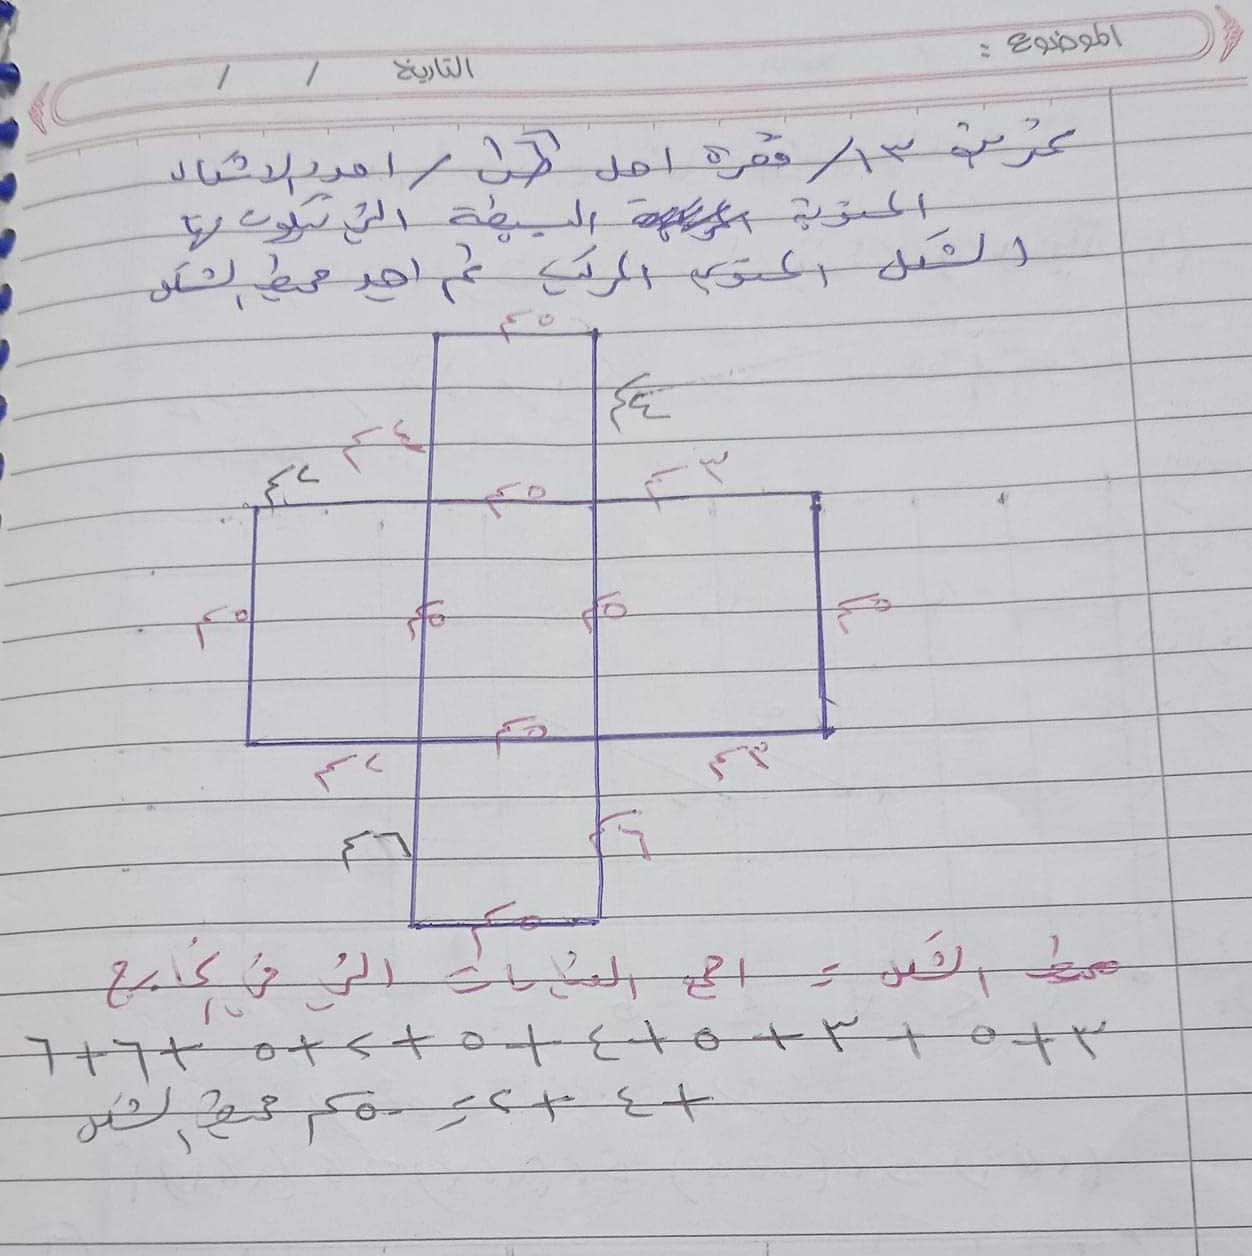 الموضوع :
التاريخ / /
تمرين ١٣/ فقرة احل / احدد الاشكال
المستوية البسيطة التي تتكون منها
الشكل المستوي المركب ثم اجد محيط الشكل
٥م
٤م
٤م
٢م
٥م
٣م
٥م
٥م
٥م
٥م
٥م
٢م
٣م
٦م
٦م
٥م
محيط الشكل = اجمع القياسات التي من الخارج
٣+٥+٣+٥+٤+٥+٢+٥+٦+٦
+٤+٢= ٥٠م محيط الشكل